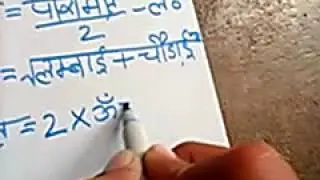 = परिमाप / 2 - ल०
= √लम्बाई² + चौड़ाई²
= 2 × ऊँ